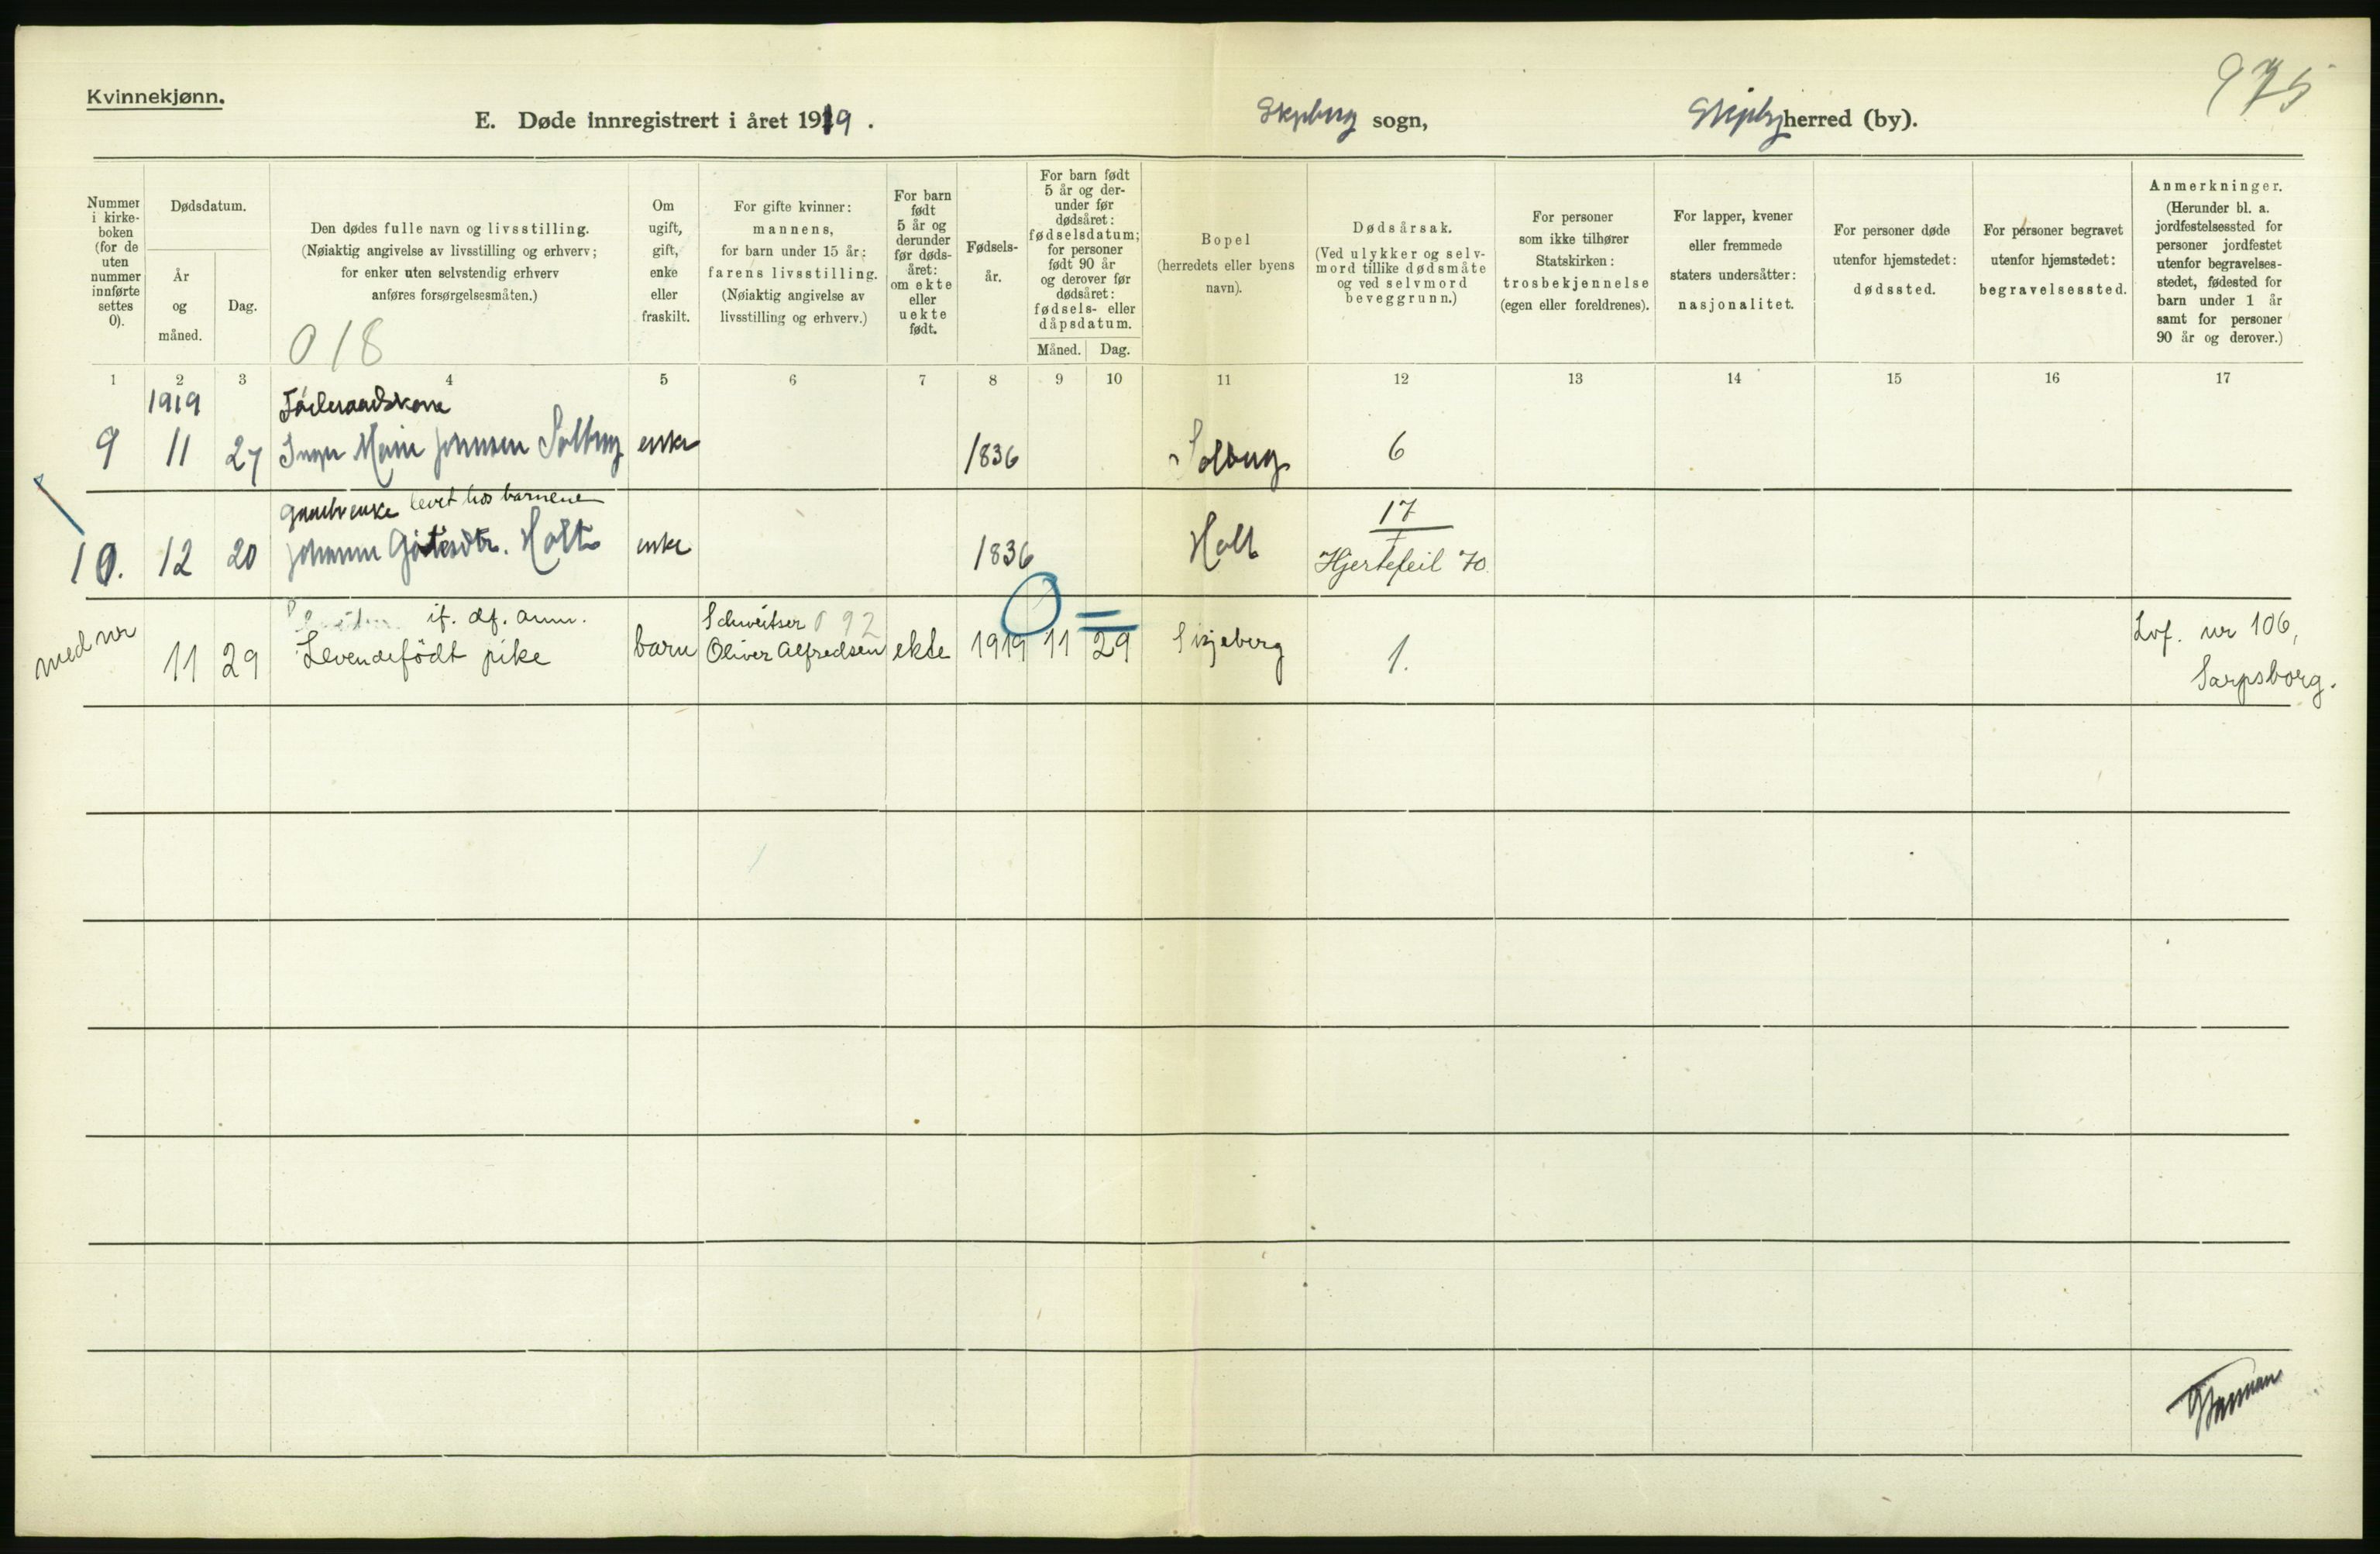 Kvinnekjønn.
975
E. Døde innregistrert i året 1919.
Skjeberg sogn,
Skjeberg herred (by).
Nummer i kirke-boken (for de uten nummer innførte settes 0).
Dødsdatum.
År og måned.
Dag.
Den dødes fulle navn og livsstilling.
(Nøiaktig angivelse av livsstilling og erhverv;
for enker uten selvstendig erhverv
anføres forsørgelsesmåten.)
018
Om ugift, gift, enke eller fraskilt.
For gifte kvinner:
mannens,
for barn under 15 år:
farens livsstilling.
(Nøiaktig angivelse av
livsstilling og erhverv.)
For barn født 5 år og derunder før døds-året: om ekte eller uekte født.
Fødsels-år.
For barn født
5 år og der-
under før
dødsåret:
fødselsdatum;
for personer
født 90 år
og derover før
dødsåret:
fødsels- eller
dåpsdatum.
Måned. Dag.
Bopel
(herredets eller byens
navn).
Dødsårsak.
(Ved ulykker og selv-
mord tillike dødsmåte
og ved selvmord
beveggrunn.)
For personer
som ikke tilhører
Statskirken:
trosbekjennelse
(egen eller foreldrenes).
For lapper, kvener
eller fremmede
staters undersåtter:
nasjonalitet.
For personer døde
utenfor hjemstedet:
dødssted.
For personer begravet
utenfor hjemstedet:
begravelsessted.
Anmerkninger.
(Herunder bl. a.
jordfestelsessted for
personer jordfestet
utenfor begravelses-
stedet, fødested for
barn under 1 år
samt for personer
90 år og derover.)
1 2 3 4 5 6 7 8 9 10 11 12 13 14 15 16 17
1919
9 11 27 Johnsen Solberg enke 1836 Solberg 6
levet hos barnene
17
10. 12 20 Holt enke 1836 Holt Hjertefeil 70.
if. df. anm. Schweitser 092
med nr 11 29 Levendefödt pike barn Oliver Alfredsen ekte 1919 11 29 Skjeberg 1. Lvf. nr 106,
Sarpsborg.